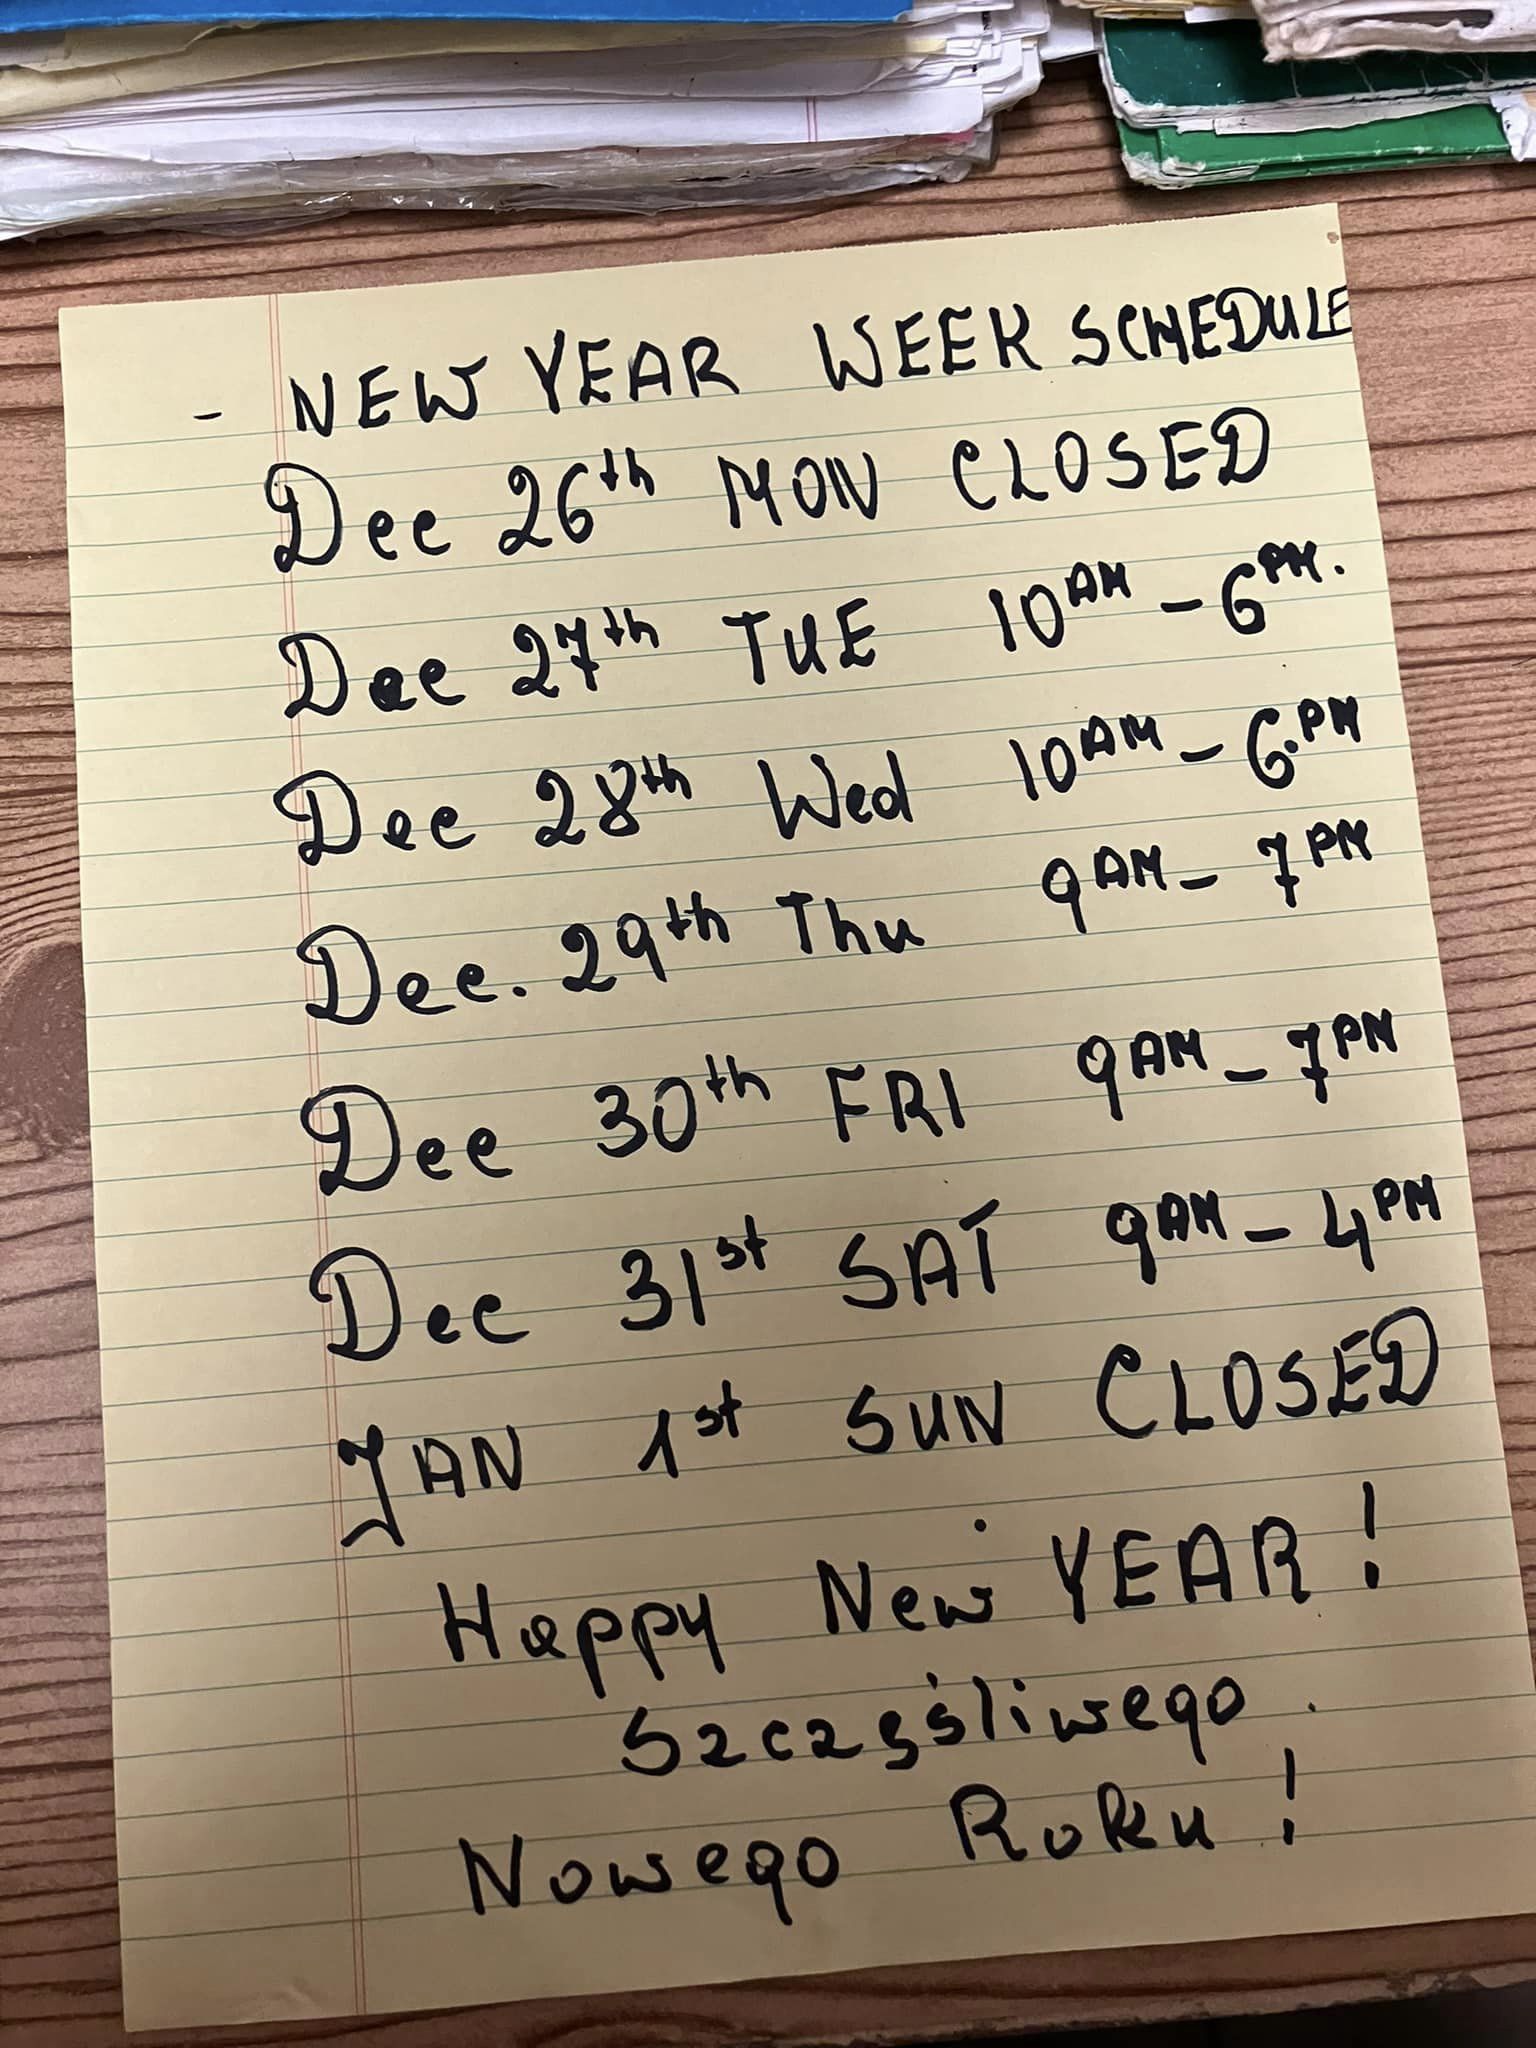 - NEW YEAR WEEK SCHEDULE
Dec 26th MON CLOSED
Dec 27th TUE 10AM - 6PM.
Dec 28th Wed 10AM - 6.PM
Dec. 29th Thu 9AM - 7PM
Dec 30th FRI 9AM - 7PM
Dec 31st SAT 9AM - 4PM
JAN 1st SUN CLOSED
Happy New YEAR!
Szczęśliwego
Nowego Roku!